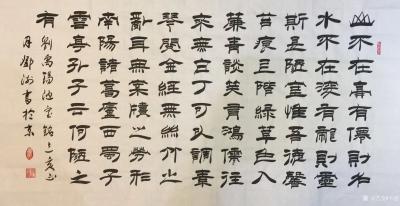 山不在高有僊則名
水不在深有龍則靈
斯是陋室惟吾德馨
苔痕上階綠草色入
簾青談笑有鴻儒往
來無白丁可以調素
琴閱金經無絲竹之
亂耳無案牘之勞形
南陽諸葛廬西蜀子
雲亭孔子云何陋之
有
劉禹錫陋室銘
月鄧州書於京